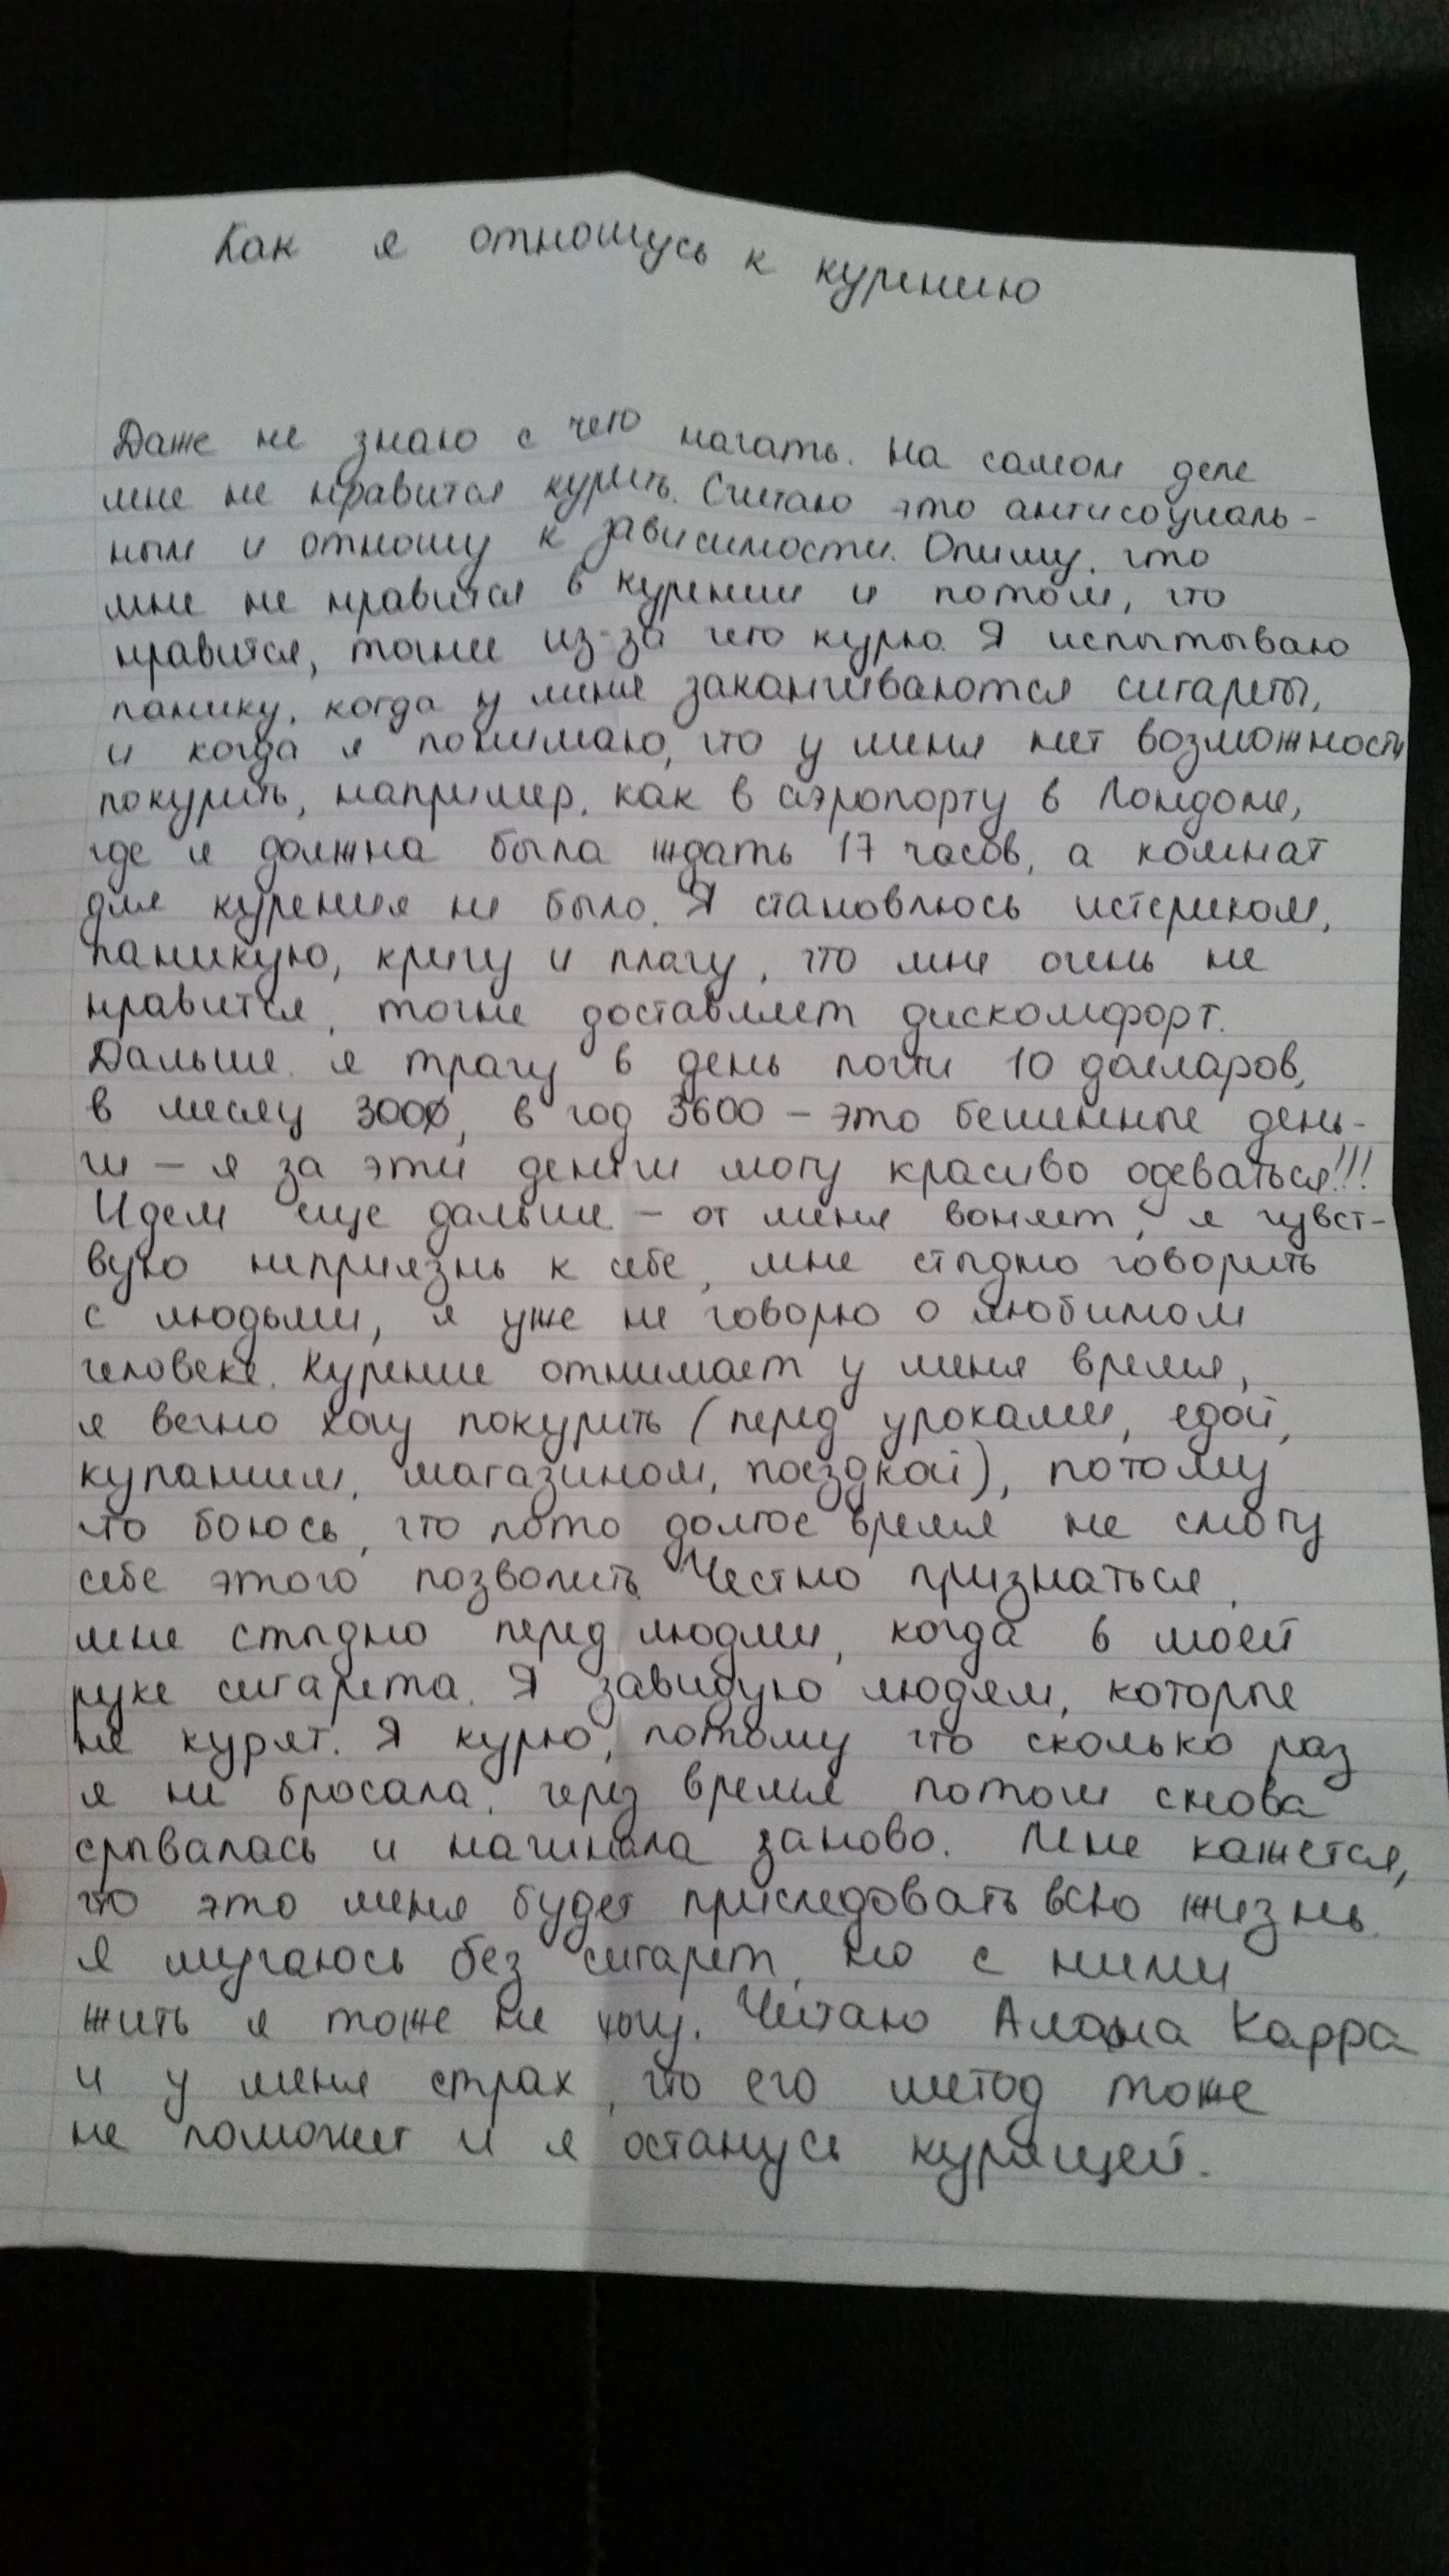 Как я отношусь к курению
Даже не знаю с чего начать. На самом деле
мне не нравится курить. Считаю это антисоциаль-
ным и отношу к зависимости. Опишу, что
мне не нравится в курении и потом, что
нравится, точнее из-за чего курю. Я испытываю
панику, когда у меня заканчиваются сигареты,
и когда я понимаю, что у меня нет возможности
покурить, например, как в аэропорту в Лондоне,
где я должна была ждать 17 часов, а комнат
для курения не было. Я становлюсь истериком,
паникую, кричу и плачу, что мне очень не
нравится, точне доставляет дискомфорт.
Дальше. я трачу в день почти 10 долларов,
в месяц 300, в год 3600 – это бешенные день-
ги – я за эти деньги могу красиво одеваться!!!
Идем еще дальше – от меня воняет, я чувст-
вую неприязнь к себе, мне стыдно говорить
с людьми, я уже не говорю о любимом
человеке. Курение отнимает у меня время,
я вечно хочу покурить (перед уроками, едой,
купанием, магазином, поездкой), потому
что боюсь, что пото долгое время не смогу
себе этого позволить. Честно признаться,
мне стыдно перед людми, когда в моей
руке сигарета. Я завидую людям, которые
не курят. Я курю, потому что сколько раз
я не бросала, через время потом снова
срывалась и начинала заново. Мне кажется,
что это меня будет приследовать всю жизнь.
Я мучаюсь без сигарет, но с ними
жить я тоже не хочу. Читаю Алана Карра
и у меня страх, что его метод тоже
не поможет и я останусь курящей.